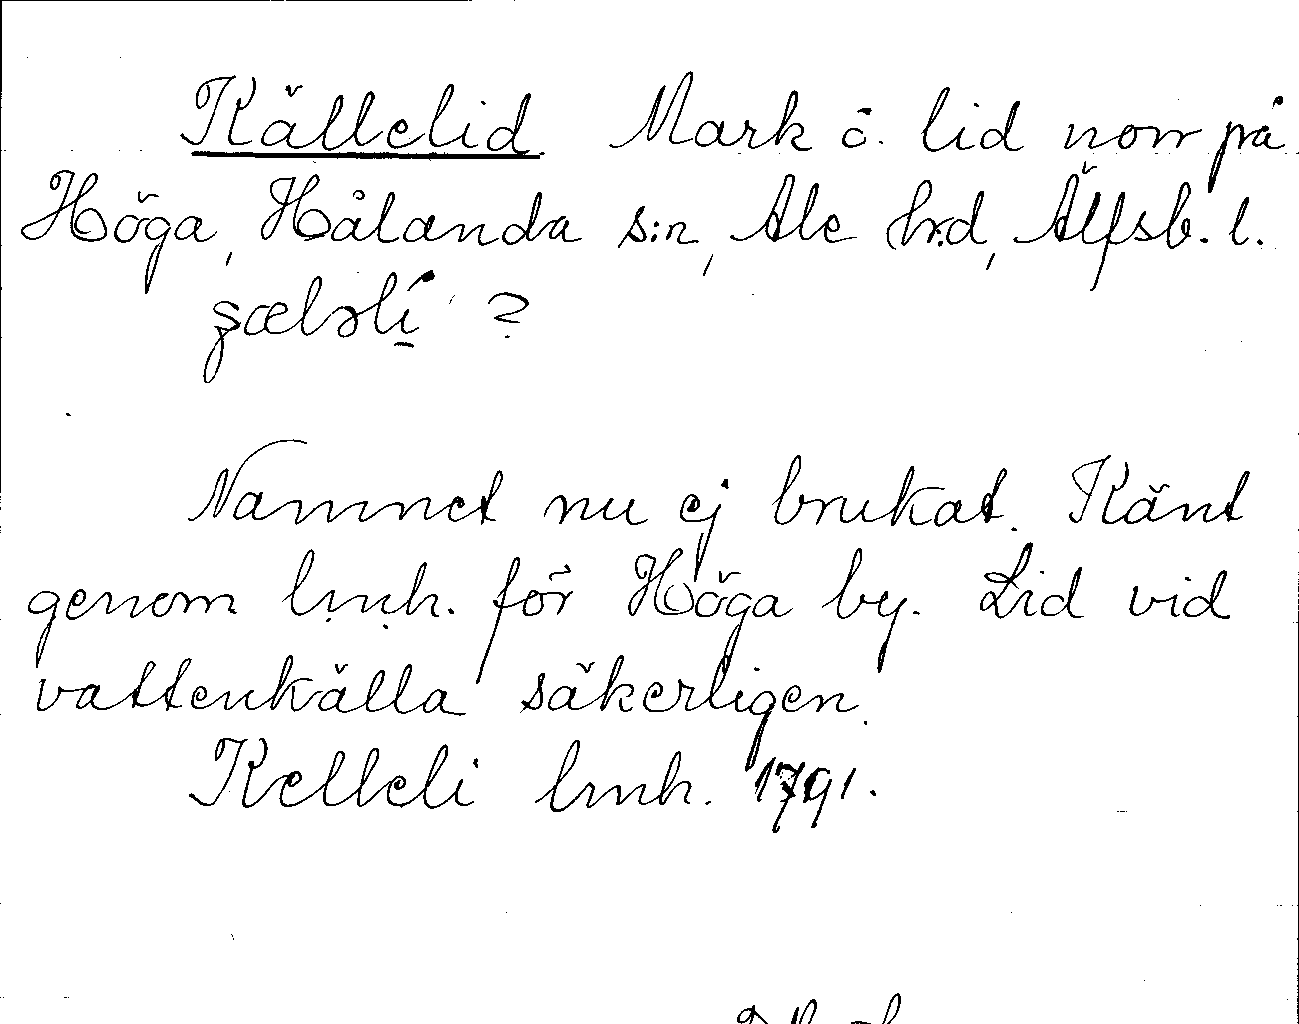 Källelid. Mark o. lid norr på
Höga, Hålanda s:n, Ale h:d, Älfsb. l.
ʂæləlí ?
Namnet nu ej brukat. Känt
genom lmh. för Höga by. Lid vid
vattenkälla säkerligen.
Kelleli lmh. 1791.